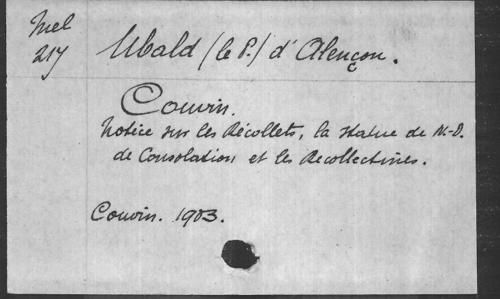 Mel
217
Ubald (le P.) d'Alençon.
Couvin.
Notice sur les Récollets, la statue de N-D.
de Consolation et les Recollectines.
Couvin. 1903.